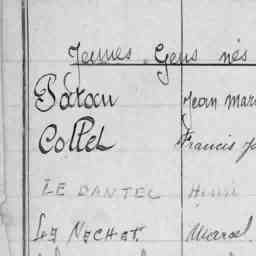 Jeunes Gens nés
Paratau Jean Mar
Collet Francis Jo
LE DANTEL Henri
LE NECHET. Marcel